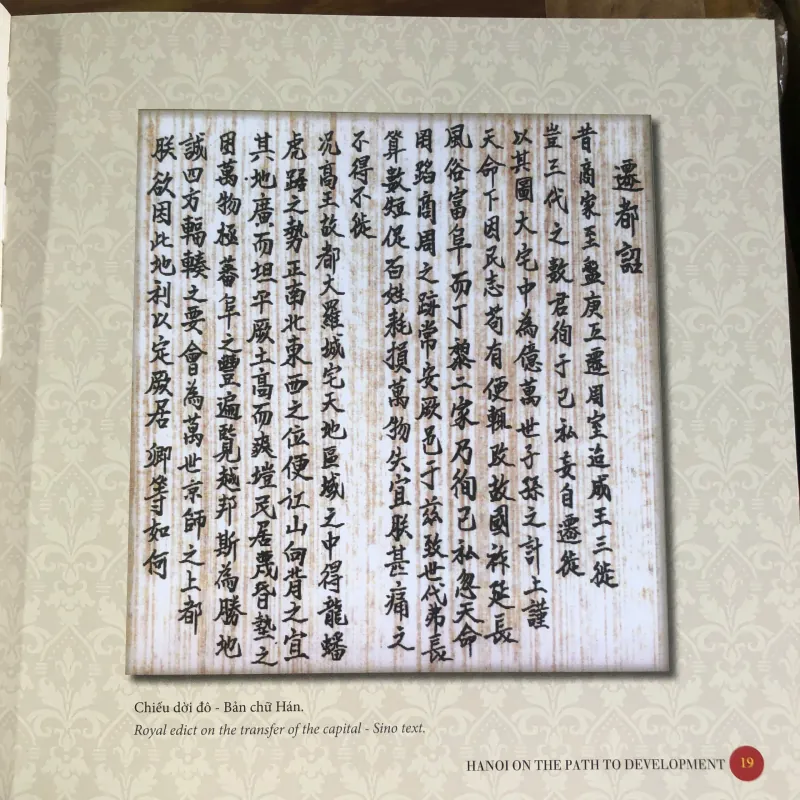 遷都詔
昔商家至盤庚五遷周室迨成王三徙
豈三代之數君徇于己私妄自遷徙
以其圖大宅中為億萬世子孫之計上謹
天命下因民志苟有便輒改故國祚延長
風俗富阜而丁黎二家乃徇己私忽天命
罔蹈商周之跡常安厥邑于茲致世代弗長
算數短促百姓耗損萬物失宜朕甚痛之
不得不徙
况高王故都大羅城宅天地區域之中得龍蟠
虎踞之勢正南北東西之位便江山向背之宜
其地廣而坦平厥土高而爽塏民居蔑昏墊之
困萬物極蕃阜之豐遍覽越邦斯為勝地
誠四方輻輳之要會為萬世京師之上都
朕欲因此地利以定厥居卿等如何
Chiếu dời đô - Bản chữ Hán.
Royal edict on the transfer of the capital - Sino text.
HANOI ON THE PATH TO DEVELOPMENT 19